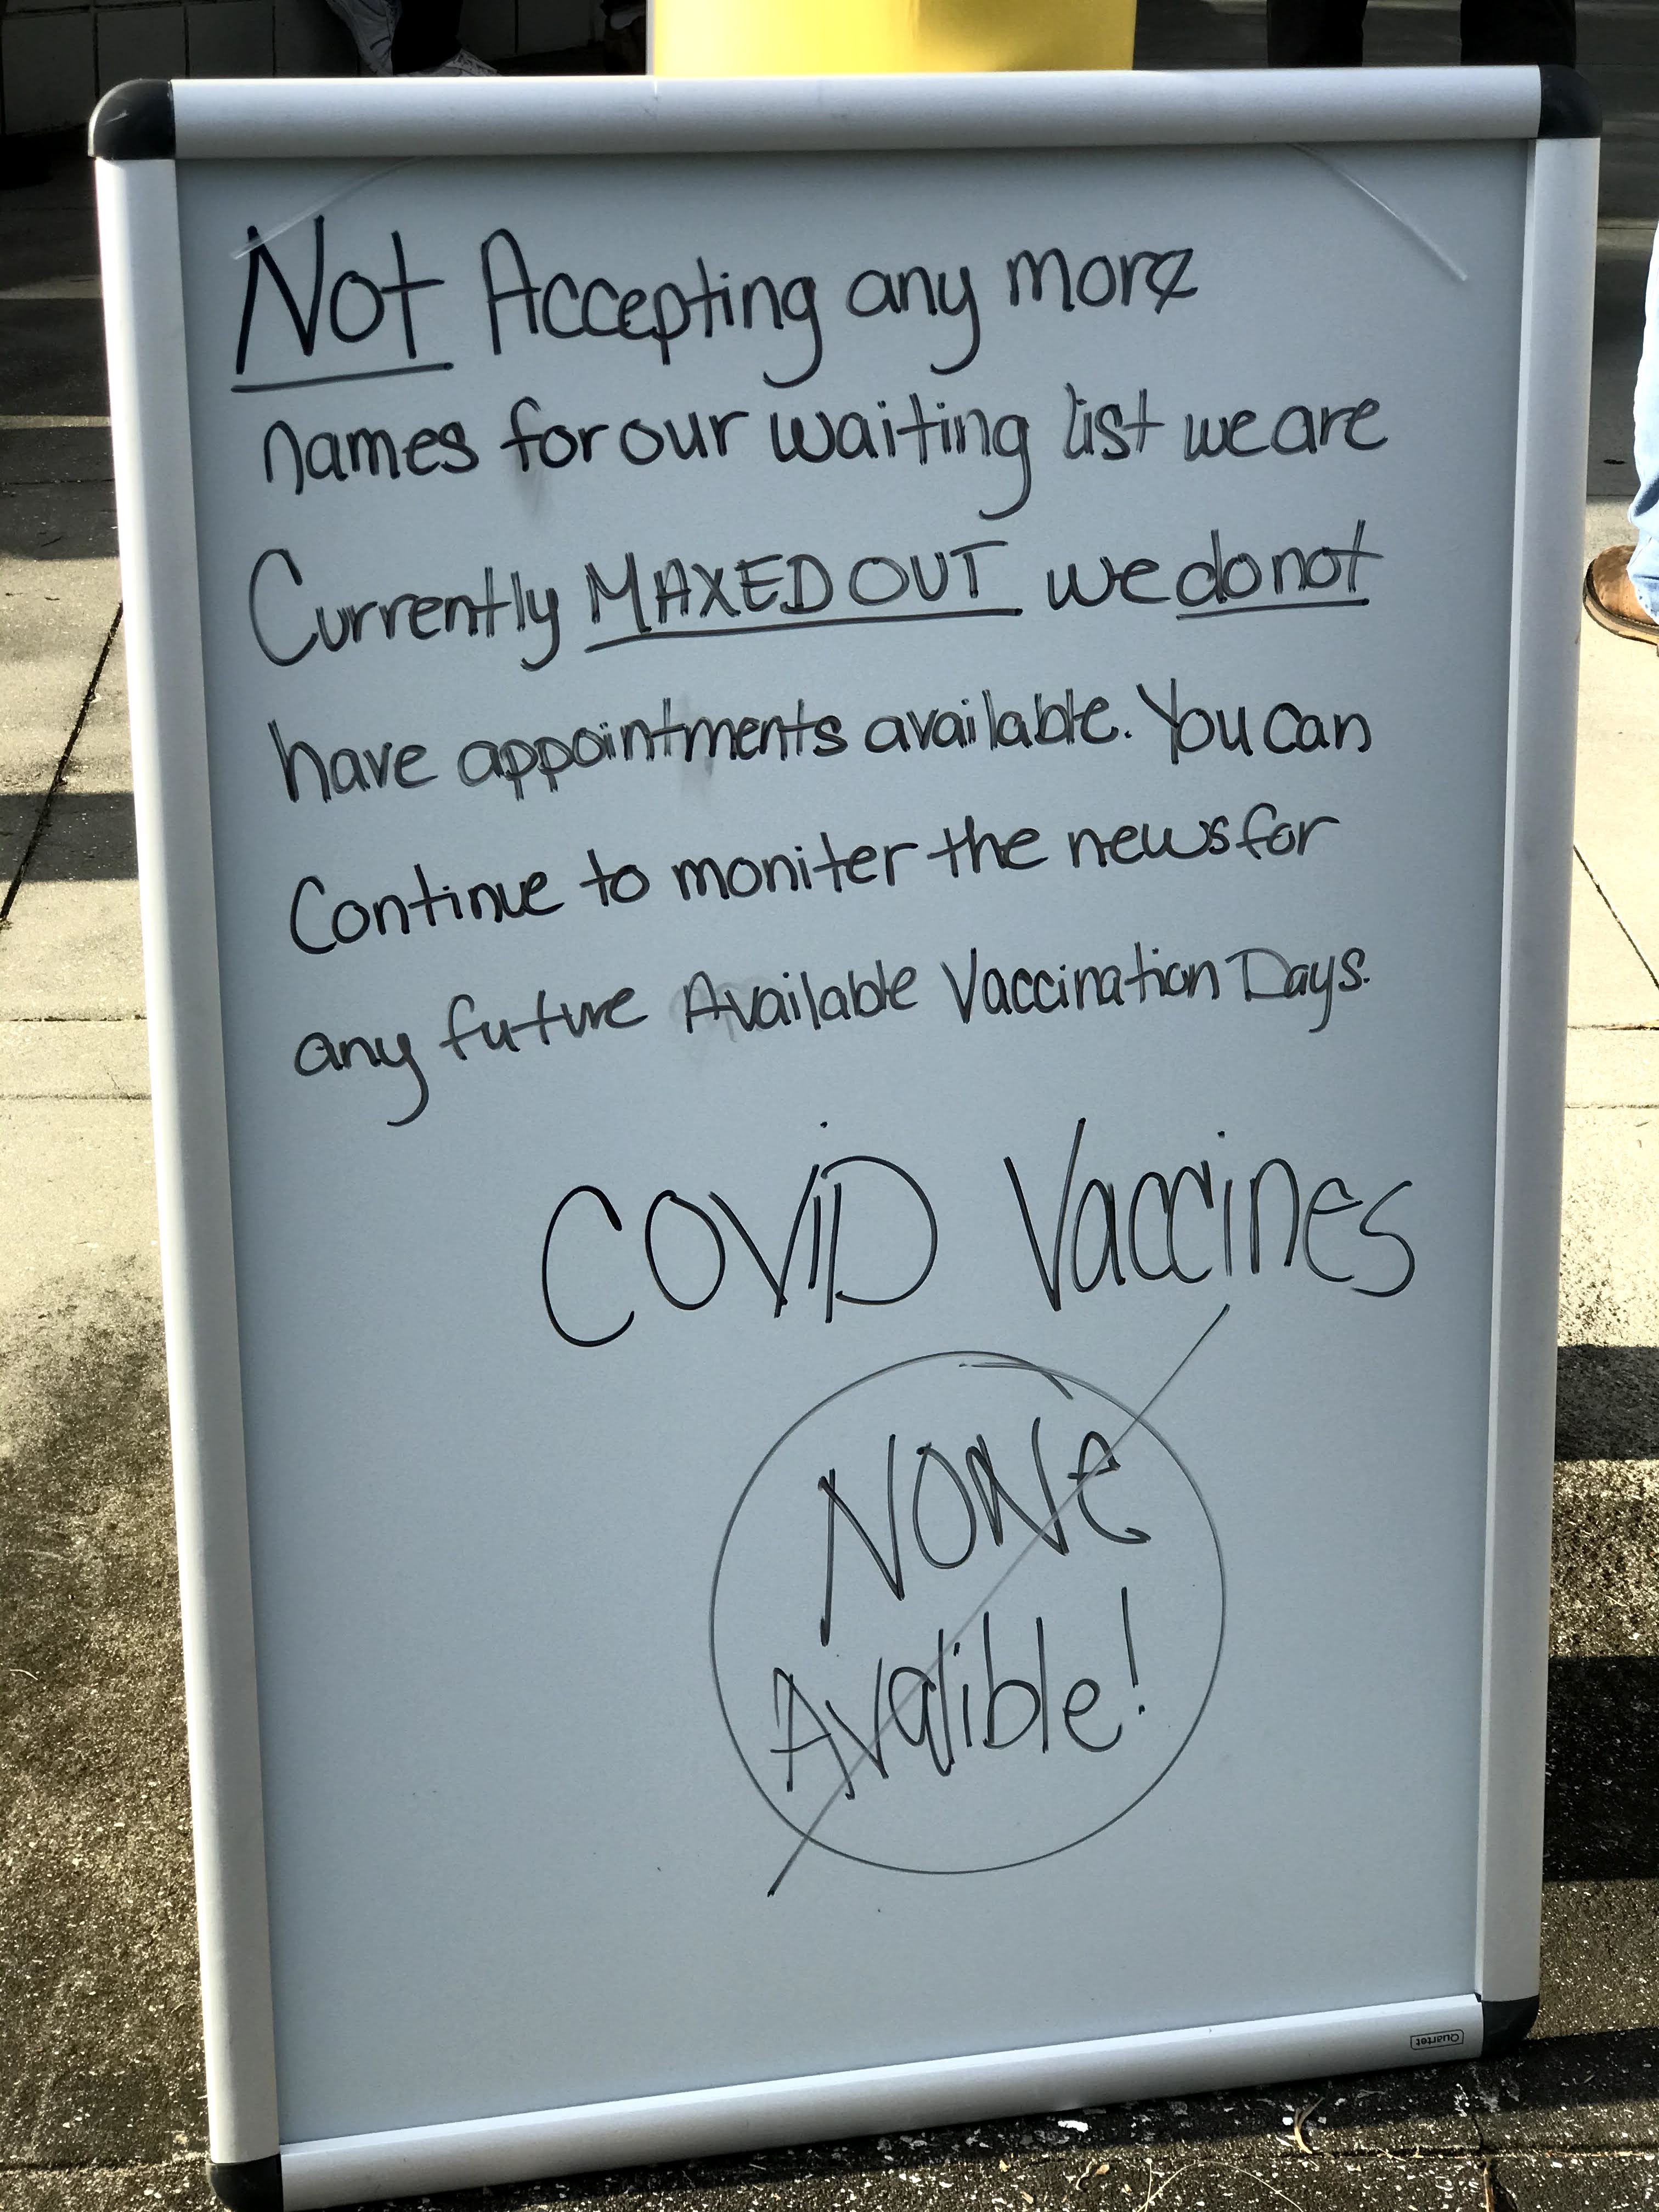 Not Accepting any more
names for our waiting list we are
Currently MAXED OUT we do not
have appointments available. You can
Continue to moniter the news for
any future Available Vaccination Days.
COViD Vaccines
NONe
Avalible!
Quartet